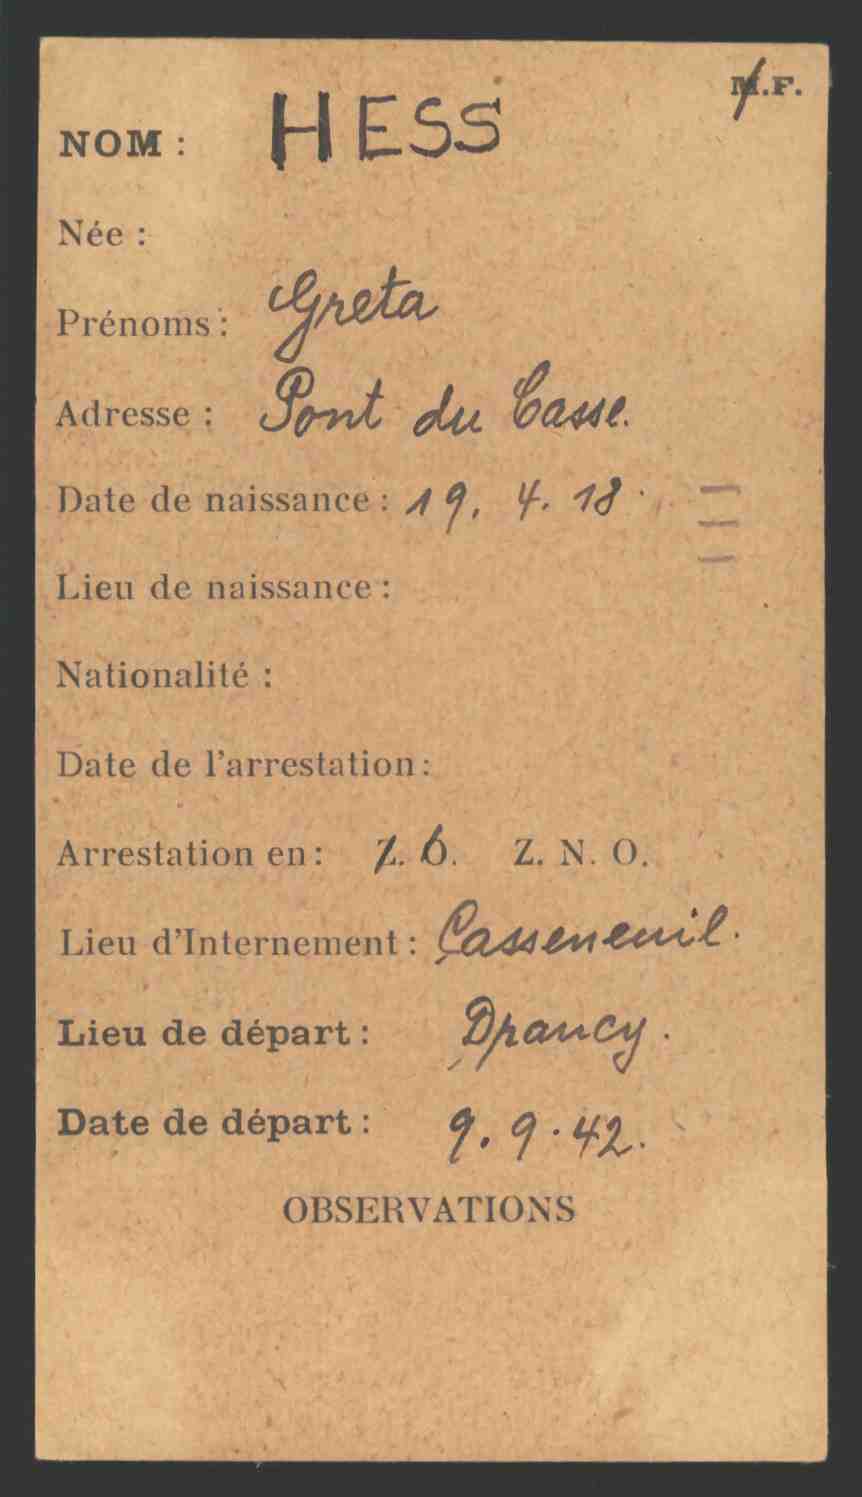 M.F.
NOM : HESS
Née :
Prénoms : Greta
Adresse : Pont du Casse.
Date de naissance : 19. 4. 18
Lieu de naissance :
Nationalité :
Date de l'arrestation :
Arrestation en : Z. O. Z. N. O.
Lieu d'Internement : Casseneuil.
Lieu de départ : Drancy.
Date de départ : 9. 9. 42.
OBSERVATIONS